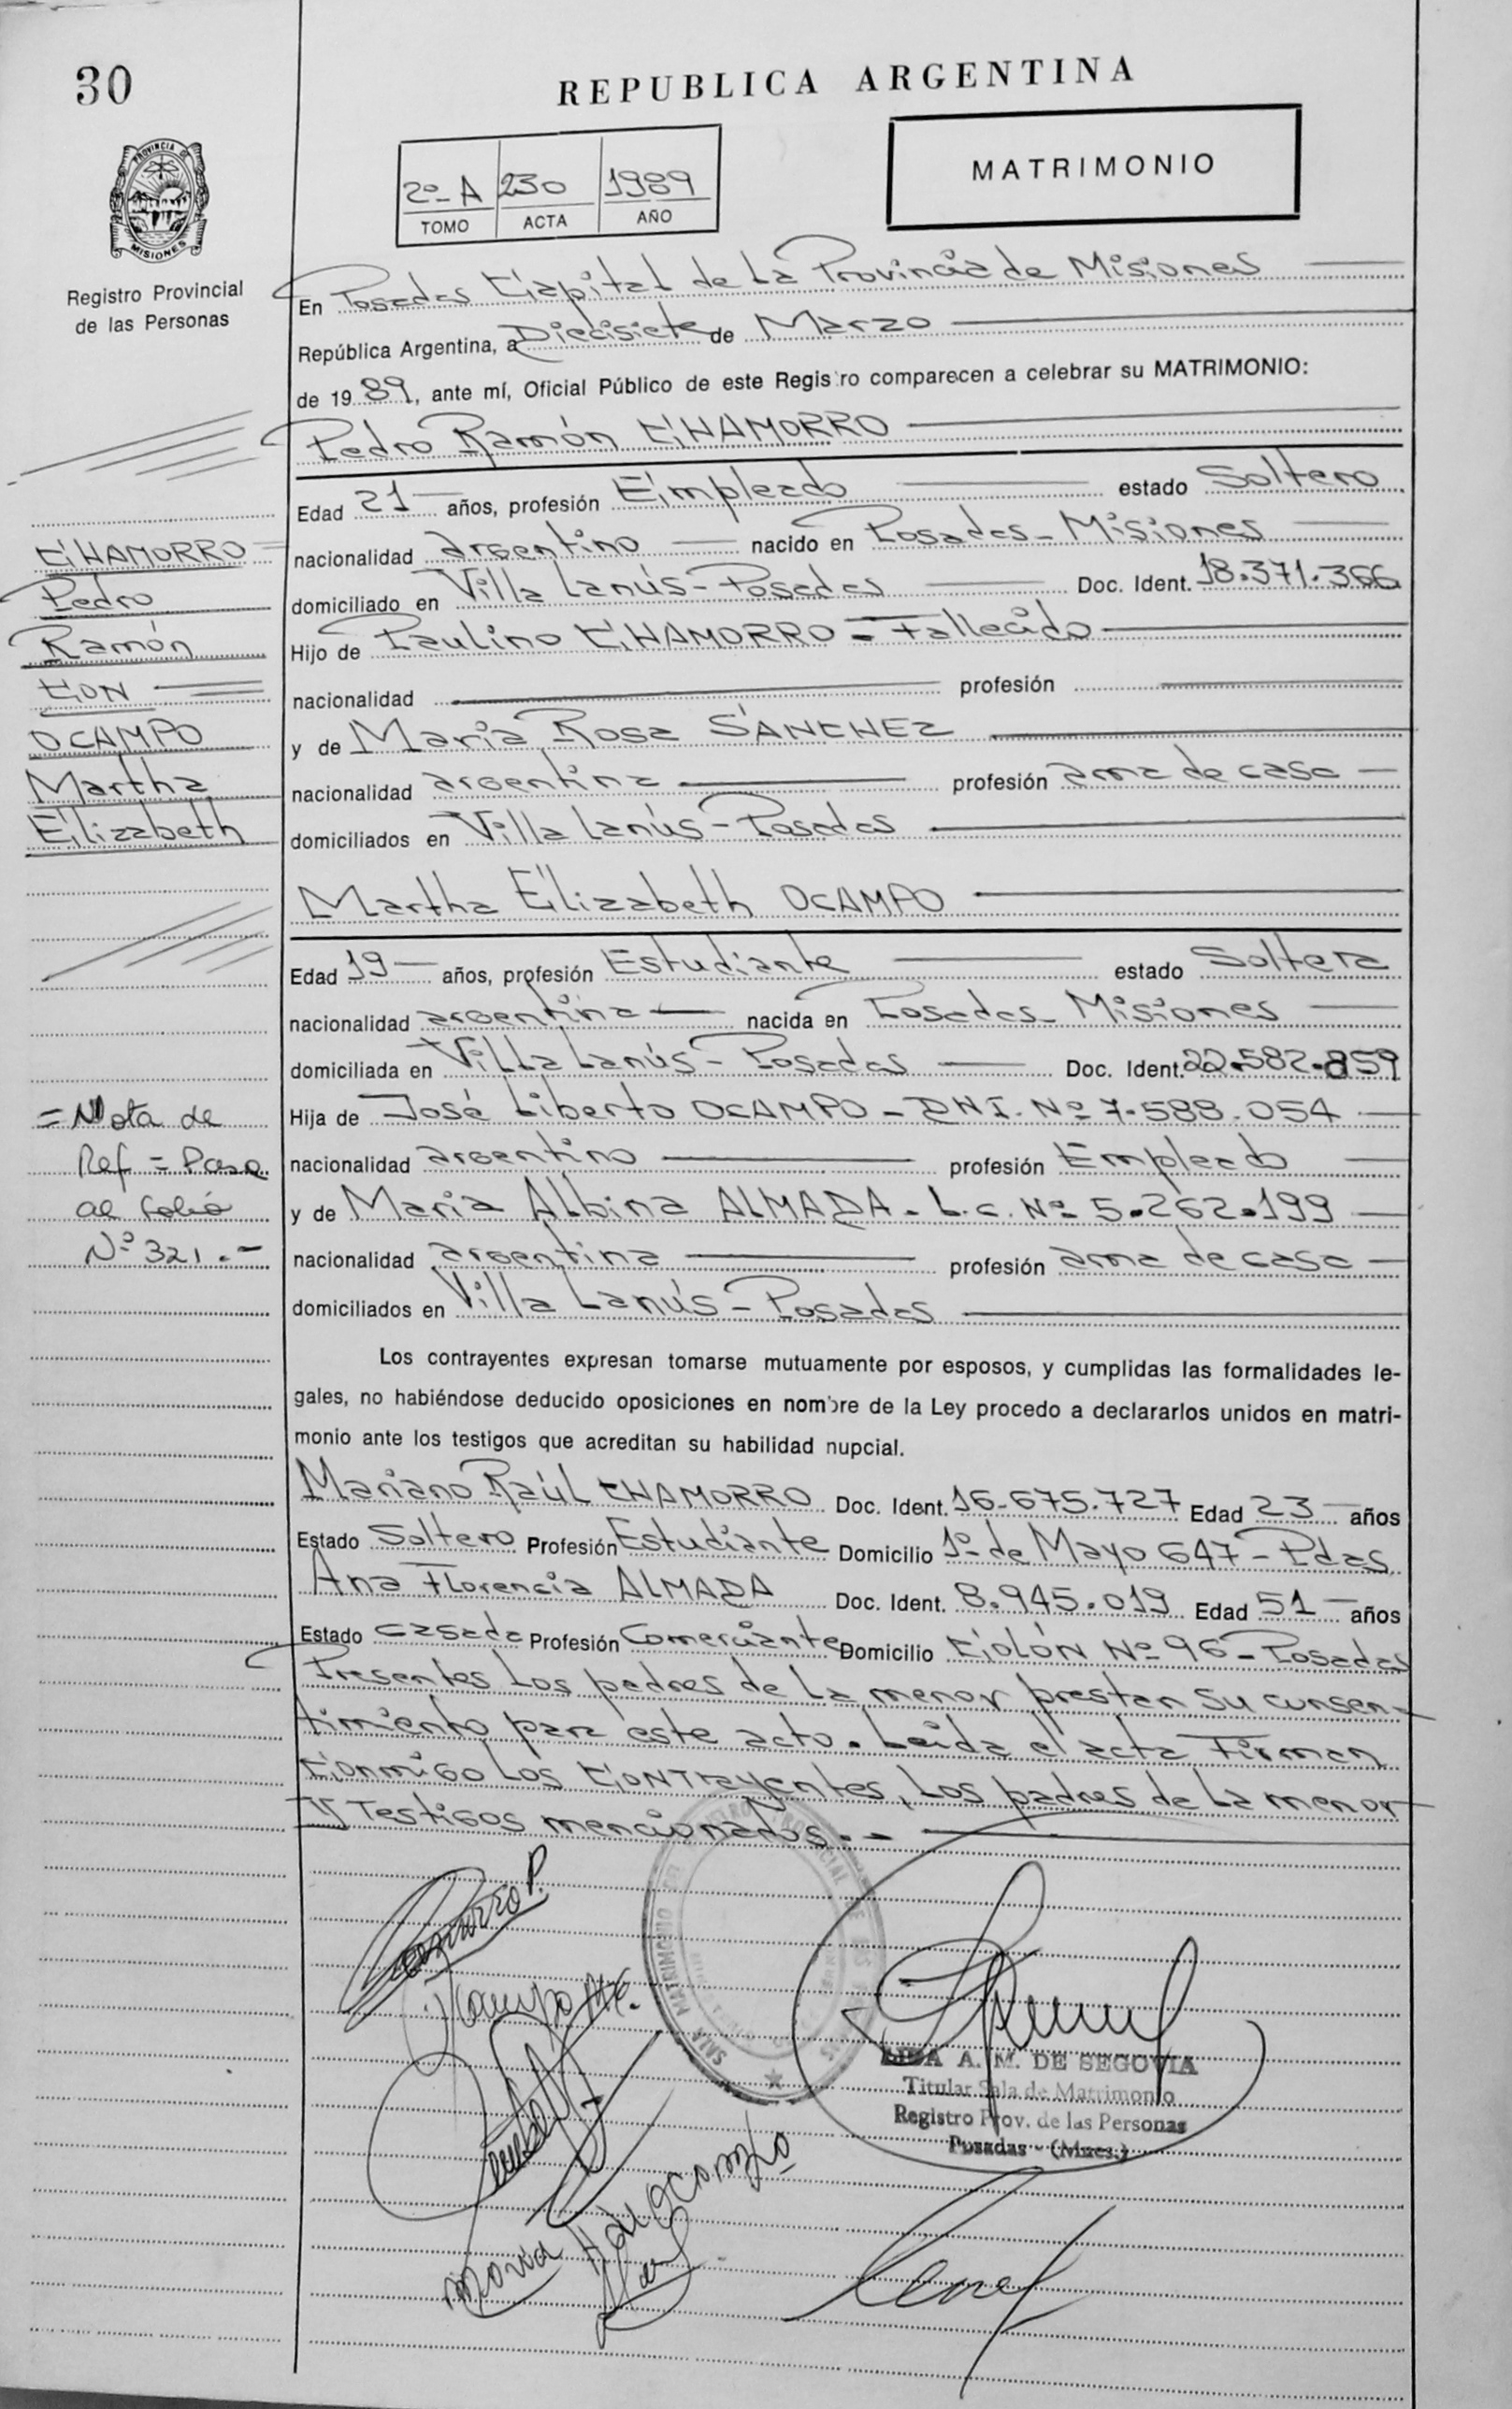 30
REPUBLICA ARGENTINA
PROVINCIA DE
MISIONES
Registro Provincial
de las Personas
2º A 230 1989
TOMO ACTA AÑO
MATRIMONIO
En Posadas Capital de La Provincia de Misiones
República Argentina, a Diecisiete de Marzo
de 1989, ante mí, Oficial Público de este Registro comparecen a celebrar su MATRIMONIO:
Pedro Ramón CHAMORRO
Edad 21 años, profesión Empleado estado Soltero
nacionalidad argentino nacido en Posadas - Misiones
domiciliado en Villa Lanús - Posadas Doc. Ident. 18.371.366
Hijo de Paulino CHAMORRO - Fallecido
nacionalidad profesión
y de María Rosa SÁNCHEZ
nacionalidad argentina profesión ama de casa
domiciliados en Villa Lanús - Posadas
Martha Elizabeth OCAMPO
Edad 19 años, profesión Estudiante estado Soltera
nacionalidad argentina nacida en Posadas - Misiones
domiciliada en Villa Lanús - Posadas Doc. Ident. 22.582.859
Hija de José Liberto OCAMPO - DNI. Nº 7.588.054
nacionalidad argentino profesión Empleado
y de María Albina ALMADA - L.C. Nº 5.262.199
nacionalidad argentina profesión ama de casa
domiciliados en Villa Lanús - Posadas
Los contrayentes expresan tomarse mutuamente por esposos, y cumplidas las formalidades le-
gales, no habiéndose deducido oposiciones en nombre de la Ley procedo a declararlos unidos en matri-
monio ante los testigos que acreditan su habilidad nupcial.
Mariano Raúl CHAMORRO Doc. Ident. 16.675.727 Edad 23 años
Estado Soltero Profesión Estudiante Domicilio 1º de Mayo 647 - Pdas
Ana Florencia ALMADA Doc. Ident. 8.945.019 Edad 51 años
Estado casada Profesión Comerciante Domicilio COLÓN Nº 96 - Posadas
Presentes Los padres de La menor prestan su consen-
timiento para este acto. Leída el acta Firman
Conmigo Los CONTrayentes, Los padres de La menor
y Testigos mencionados.-
CHAMORRO
Pedro
Ramón
CON
OCAMPO
Martha
Elizabeth
= Nota de
Ref = Pasa
al folio
Nº 321.-
Chamorro P.
Ocampo M E.
María A de Ocampo
SALA MATRIMONIO
LIDA A. M. DE SEGOVIA
Titular Sala de Matrimonio
Registro Prov. de las Personas
Posadas - (Mnes.)